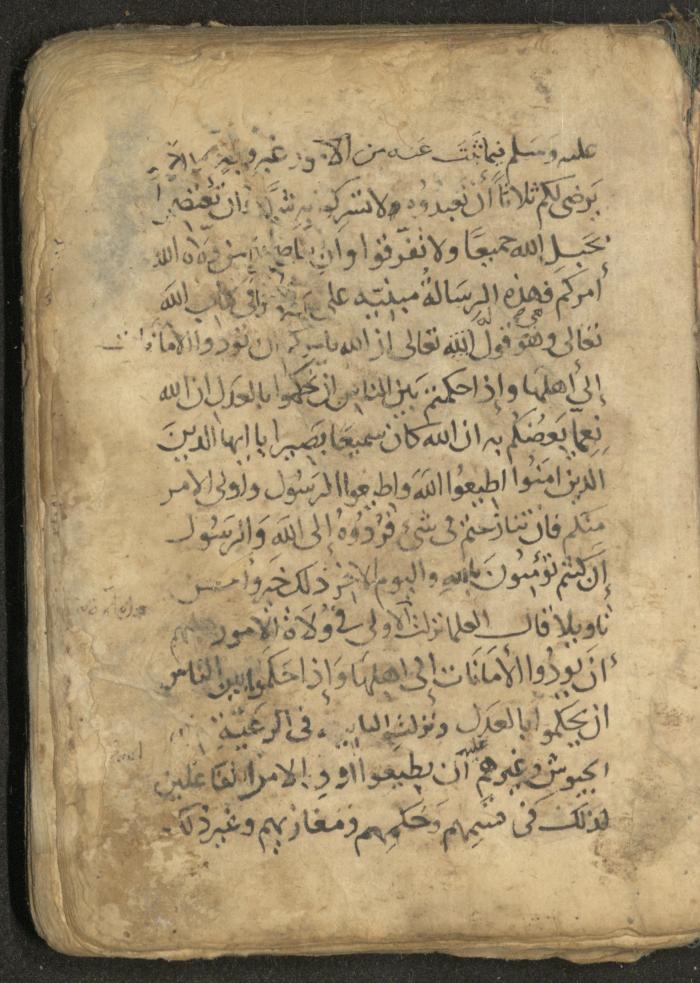 عليه وسلم فيما ثبت عنه من الله يرضى
يرضى لكم ثلاثا أن تعبدوه ولا تشركوا به شيئا وأن تعتصموا
بحبل الله جميعا ولا تفرقوا وأن تناصحوا من ولاه الله
أمركم فهذه الرسالة مبنيه على آية في كتاب الله
تعالى وهو قول الله تعالى ان الله يامركم ان تودوا الأمانات
إلى أهلها وإذا حكمتم بين الناس ان تحكموا بالعدل ان الله
نعما يعضكم به ان الله كان سميعا بصيرا يا ايها الدين
الدين امنوا اطيعوا الله واطيعوا الرسول واولى الأمر
منكم فان تنازعتم فى شئ فردوه إلى الله والرسول
إن كنتم تؤمنون بالله واليوم الاخر ذلك خير واحسن
تاويلا قال العلما نزلت الأولى في ولاة الأمور
أن يودوا الأمانات إلى اهلها وإذا حكموا بين الناس
ان يحكموا بالعدل ونزلت الثانيه فى الرعية
الجيوش وغيرهم عليهم أن يطيعوا اولي الامر الفاعلين
لذلك فى قسمهم وحكمهم ومغازيهم وغير ذلك